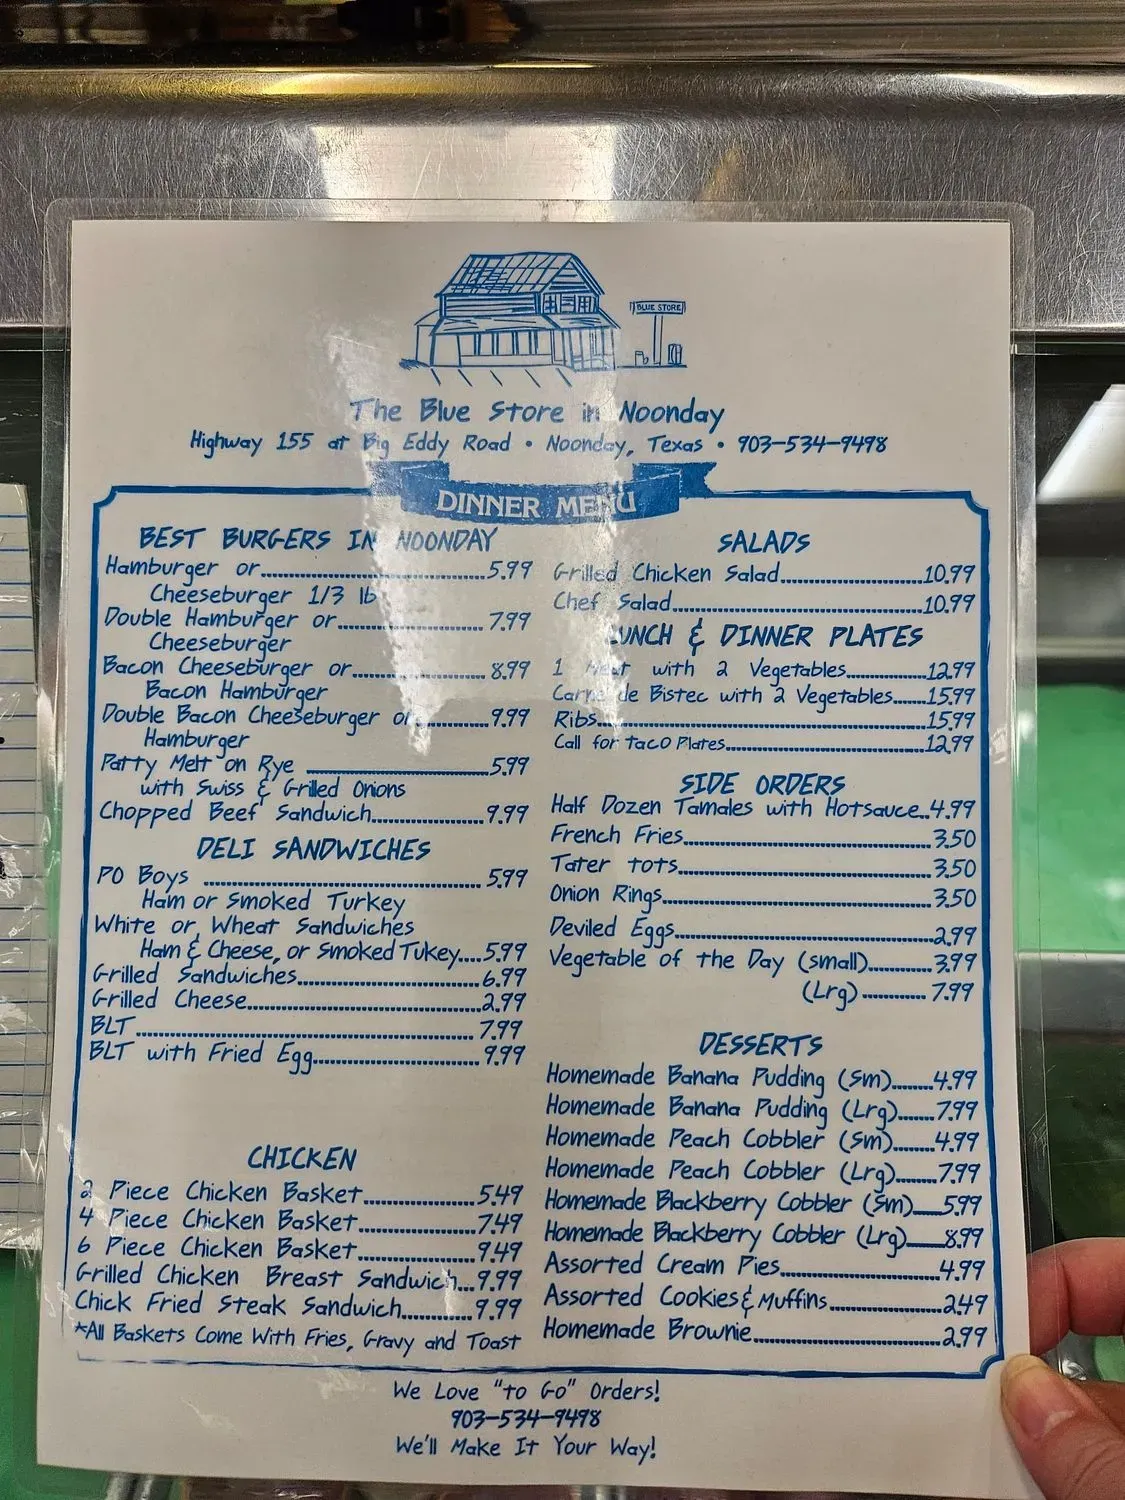 BLUE STORE
The Blue Store in Noonday
Highway 155 at Big Eddy Road • Noonday, Texas • 903-534-9498
DINNER MENU
BEST BURGERS IN NOONDAY
Hamburger or 5.99
Cheeseburger 1/3 lb
Double Hamburger or 7.99
Cheeseburger
Bacon Cheeseburger or 8.99
Bacon Hamburger
Double Bacon Cheeseburger or 9.99
Hamburger
Patty Melt on Rye 5.99
with Swiss & Grilled Onions
Chopped Beef Sandwich 9.99
DELI SANDWICHES
PO Boys 5.99
Ham or Smoked Turkey
White or Wheat Sandwiches
Ham & Cheese, or Smoked Tukey 5.99
Grilled Sandwiches 6.99
Grilled Cheese 2.99
BLT 7.99
BLT with Fried Egg 9.99
CHICKEN
2 Piece Chicken Basket 5.49
4 Piece Chicken Basket 7.49
6 Piece Chicken Basket 9.49
Grilled Chicken Breast Sandwich 9.99
Chick Fried Steak Sandwich 9.99
*All Baskets Come With Fries, Gravy and Toast
SALADS
Grilled Chicken Salad 10.99
Chef Salad 10.99
LUNCH & DINNER PLATES
1 Meat with 2 Vegetables 12.99
Carne de Bistec with 2 Vegetables 15.99
Ribs 15.99
Call for Taco Plates 12.99
SIDE ORDERS
Half Dozen Tamales with Hotsauce 4.99
French Fries 3.50
Tater tots 3.50
Onion Rings 3.50
Deviled Eggs 2.99
Vegetable of the Day (small) 3.99
(Lrg) 7.99
DESSERTS
Homemade Banana Pudding (Sm) 4.99
Homemade Banana Pudding (Lrg) 7.99
Homemade Peach Cobbler (Sm) 4.99
Homemade Peach Cobbler (Lrg) 7.99
Homemade Blackberry Cobbler (Sm) 5.99
Homemade Blackberry Cobbler (Lrg) 8.99
Assorted Cream Pies 4.99
Assorted Cookies & Muffins 2.49
Homemade Brownie 2.99
We Love "to Go" Orders!
903-534-9498
We'll Make It Your Way!